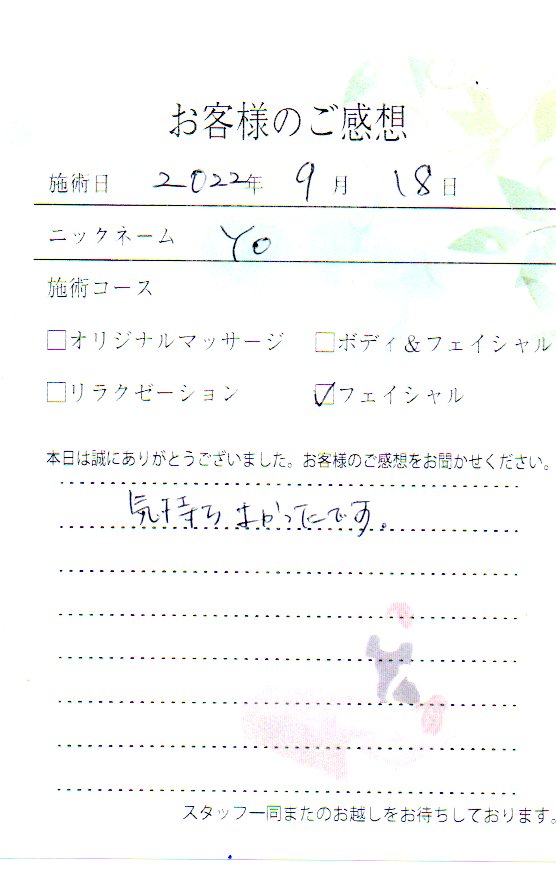 お客様のご感想
施術日 2022年 9月 18日
ニックネーム Yo
施術コース
□オリジナルマッサージ □ボディ&フェイシャル
□リラクゼーション ☑フェイシャル
本日は誠にありがとうございました。お客様のご感想をお聞かせください。
気持ちよかったです。
スタッフ一同またのお越しをお待ちしております。